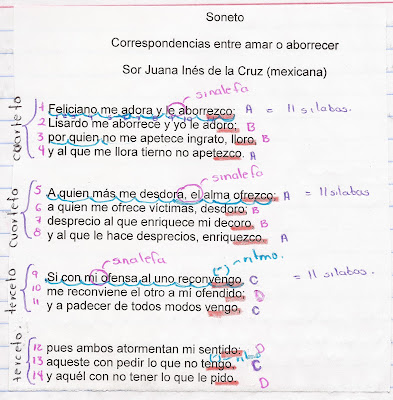 Soneto
Correspondencias entre amar o aborrecer
Sor Juana Inés de la Cruz (mexicana)
sinalefa
cuarteto
1 Feliciano me adora y le aborrezco; A = 11 silabas.
2 Lisardo me aborrece y yo le adoro; B
3 por quien no me apetece ingrato, lloro, B
4 y al que me llora tierno no apetezco. A
sinalefa
cuarteto
5 A quien más me desdora, el alma ofrezco; A = 11 silabas
6 a quien me ofrece víctimas, desdoro; B
7 desprecio al que enriquece mi decoro, B
8 y al que le hace desprecios, enriquezco. A
sinalefa
(-) ritmo.
terceto
9 Si con mi ofensa al uno reconvengo, C = 11 silabas.
10 me reconviene el otro a mí ofendido; D
11 y a padecer de todos modos vengo, C
terceto.
12 pues ambos atormentan mi sentido: D
13 aqueste con pedir lo que no tengo, C
14 y aquél con no tener lo que le pido. D